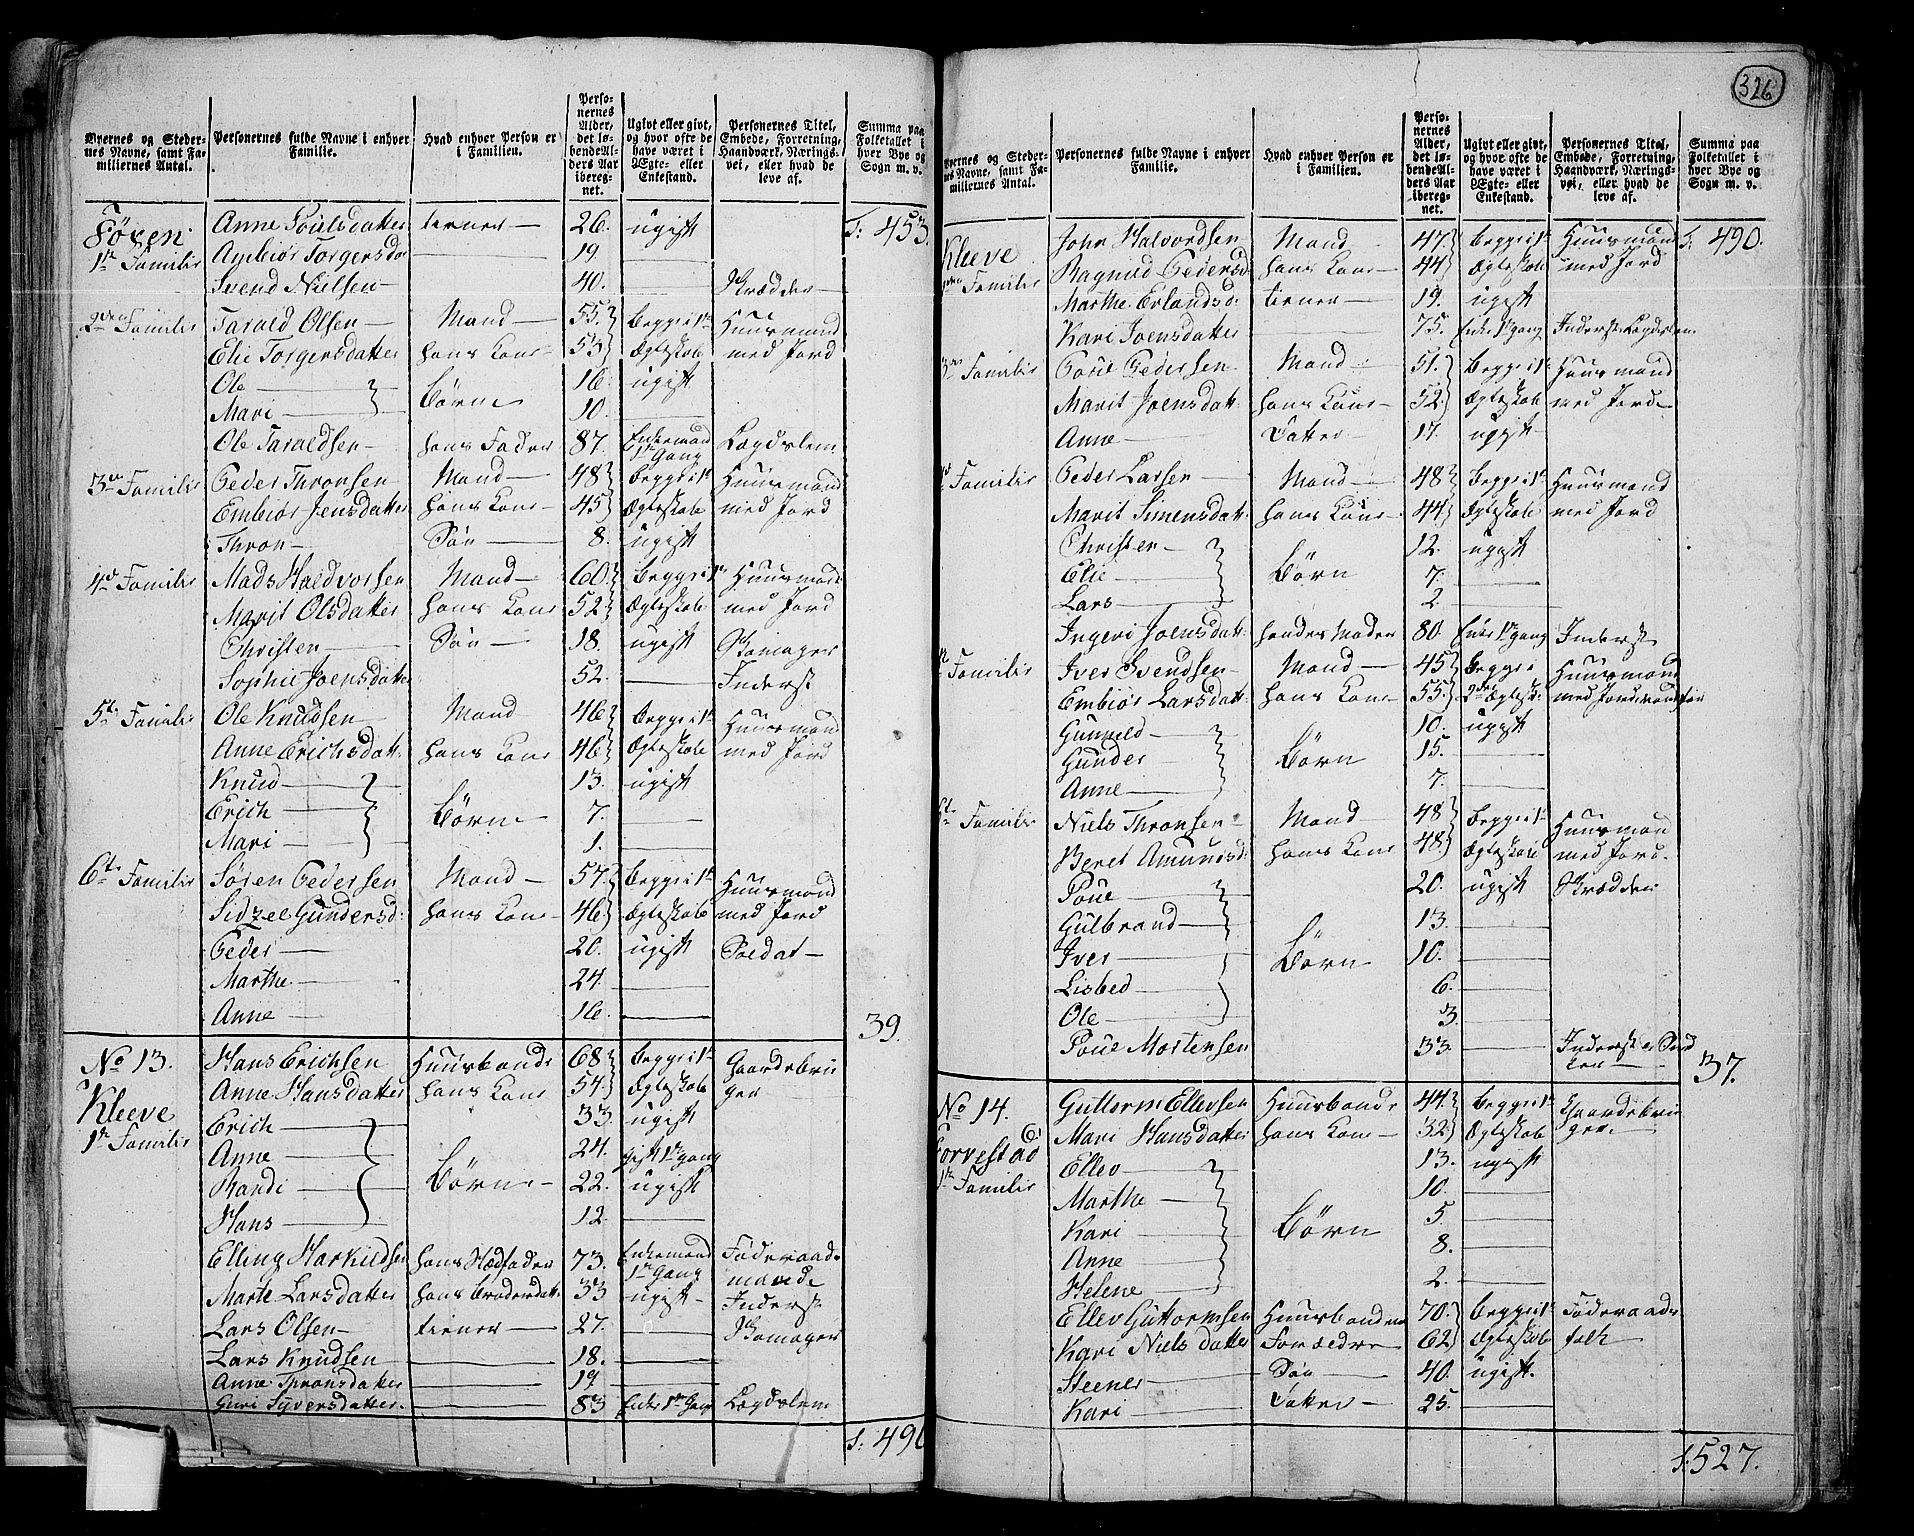 326
Byernes og Stedernes Navne, samt Familiernes Antal. | Personernes fulde Navne i enhver Familie. | Hvad enhver Person er i Familien. | Personernes Alder, det løbende Alders Aar iberegnet. | Ugivt eller givt, og hvor ofte de have været i Ægte- eller Enkestand. | Personernes Titel, Embede, Forretning, Haandværk, Næringsvei, eller hvad de leve af. | Summa paa Folketallet i hver Bye og Sogn m. v.
Føren | Anne Poulsdatter | tiener | 26. | ugift | | T: 453.
1te Familie | Ambiør Torgersda | — | 19 | —
Svend Nielsen | | 40. | — | Skrædder
2den Familie | Tarald Olsen | Mand | 55. | Begge i 1te | Huusmand
Elie Torgersdatter | hans Kone | 53 | Ægteskab | med Jord
Ole | Børn | 16 | ugift
Mari | | 10. | —
Ole Taraldsen | hans Fader | 87. | Enkemand 1te Gang | Lægdslem
3de Familie | Peder Thronsen | Mand | 48 | Begge i 1te | Huusmand
Embiør Jensdatter | hans Kone | 45 | Ægteskab | med Jord
Thron | Søn | 8. | ugift
4de Familie | Mads Haldvorsen | Mand | 60 | Begge i 1te | Huusmand
Marit Olsdatter | hans Kone | 52 | Ægteskab | med Jord
Christen | Søn | 18. | ugift | Skomager
Sophie Joensdatter | | 52. | — | Inderst
5te Familie | Ole Knudsen | Mand | 46 | Begge i 1te | Huusmand
Anne Erichsdatt: | hans Kone | 46 | Ægteskab | med Jord
Knud | | 13. | ugift
Erich | Børn | 7. | —
Mari | | 1. | —
6te Familie | Søren Pedersen | Mand | 57. | Begge i 1te | Huusmand
Sidzel Gundersd: | hans Kone | 46 | Ægteskab | med Jord
Peder | | 20. | ugift | Soldat
Marthe | | 24. | —
Anne | | 16. | — | | 39.
No 13. | Hans Erichsen | Huusbonde | 68 | Begge i 1te | Gaardebru
Kleeve | Anne Hansdatter | hans Kone | 54 | Ægteskab | ger
1te Familie | Erich | | 33. | ugift
Anne | | 24. | gift 1te gang
Randi | Børn | 22. | ugift
Hans | | 12. | —
Elling Harkildsen | hans Stedfader | 73. | Enkemand 1te Gang | Føderaads mand
Marte Larsdatter | hans Broderdatt: | 33 | ugift | Inderst
Lars Olsen | tiener | 27. | — | Skomager
Lars Knudsen | — | 18. | —
Anne Thronsdatter | — | 19 | —
Guri Syversdatter. | | 83 | Enke 1te Gang | Lægdslem
S: 490
Byernes og Stedernes Navne, samt Familiernes Antal. | Personernes fulde Navne i enhver Familie. | Hvad enhver Person er i Familien. | Personernes Alder, det løbende Alders Aar iberegnet. | Ugivt eller givt, og hvor ofte de have været i Ægte- eller Enkestand. | Personernes Titel, Embede, Forretning, Haandværk, Næringsvei, eller hvad de leve af. | Summa paa Folketallet i hver Bye og Sogn m. v.
Kleeve | John Halvordsen | Mand | 47. | Begge i 1te | Huusmand | T: 490.
2den Familie | Ragnild Pedersd | hans Kone | 44 | Ægteskab | med Jord
Marthe Erlandsd: | tiener | 19. | ugift
Kari Joensdatter | | 75. | Enke 1te gang | Inderst Lægdslem
3de Familie | Poul Pedersen | Mand | 51. | Begge i 1te | Huusmand
Marit Joensdatt: | hans Kone | 52. | Ægteskab | med Jord
Anne | Datter | 17. | ugift
Familie | Peder Larsen | Mand | 48 | Begge i 1te | Huusmand
Marit Simensdatt: | hans Kone | 44 | Ægteskab | med Jord
Christen | | 12. | ugift
Elie | Børn | 7. | —
Lars | | 2. | —
Ingeri Joensdatt: | hendes Moder | 80. | Enke 1te gang | Inderst
Familie | Iver Svendsen | Mand | 45 | Begge i | Huusmand
Embiør Larsdatt: | hans Kone | 55. | 2det Ægtesk: | med Jord
Gunnild | | 10. | ugift
Gunder | Børn | 15. | —
Anne | | 7. | —
6te Familie | Niels Thronsen | Mand | 48 | Begge i 1te | Huusman
Beret Amundsd: | hans Kone | 48. | Ægteskab | med Jord
Poul | | 20. | ugift | Skrædder
Gulbrand | | 13. | —
Iver | Børn | 10. | —
Lisbed | | 6. | —
Ole | | 3. | —
Poul Mortensen | | 33. | — | Inderst | 37.
No 14. | Guttorm Ellevsen | Huusbonde | 44. | Begge i 1te | Gaardebru
Torvestad | Mari Hansdatter | hans Kone | 32 | Ægteskab | ger
1te Familie | Ellev | | 13. | ugift
Marthe | | 10. | —
Kari | Børn | 5. | —
Anne | | 8. | —
Helene | | 2. | —
Ellev Guttormsen | Huusbondens | 70. | Begge i 1te | Føderaads
Kari Nielsdatter | Forældre | 62 | Ægteskab | folk
Steener | Søn | 40. | ugift.
Kari | Datter | 25. | —
S: 527.